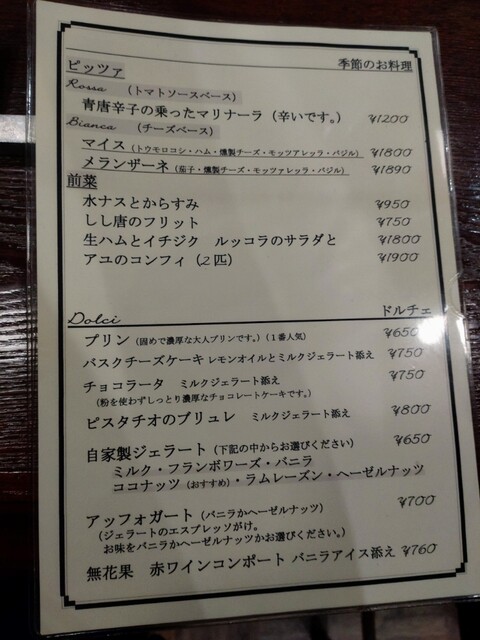 季節のお料理
ピッツァ
Rossa （トマトソースベース）
青唐辛子の乗ったマリナーラ（辛いです。） ¥1200
Bianca （チーズベース）
マイス（トウモロコシ・ハム・燻製チーズ・モッツアレッラ・バジル） ¥1800
メランザーネ（茄子・燻製チーズ・モッツァレッラ・バジル） ¥1890
前菜
水ナスとからすみ ¥950
しし唐のフリット ¥750
生ハムとイチジク ルッコラのサラダと ¥1800
アユのコンフィ（2匹） ¥1900
Dolci ドルチェ
プリン（固めで濃厚な大人プリンです。）（1番人気） ¥650
バスクチーズケーキ レモンオイルとミルクジェラート添え ¥750
チョコラータ ミルクジェラート添え ¥750
（粉を使わずしっとり濃厚なチョコレートケーキです。）
ピスタチオのブリュレ ミルクジェラート添え ¥800
自家製ジェラート（下記の中からお選びください） ¥650
ミルク・フランボワーズ・バニラ
ココナッツ（おすすめ）・ラムレーズン・ヘーゼルナッツ
アッフォガート（バニラかヘーゼルナッツ） ¥700
（ジェラートのエスプレッソがけ。
お味をバニラかヘーゼルナッツかお選びください。）
無花果 赤ワインコンポート バニラアイス添え ¥760